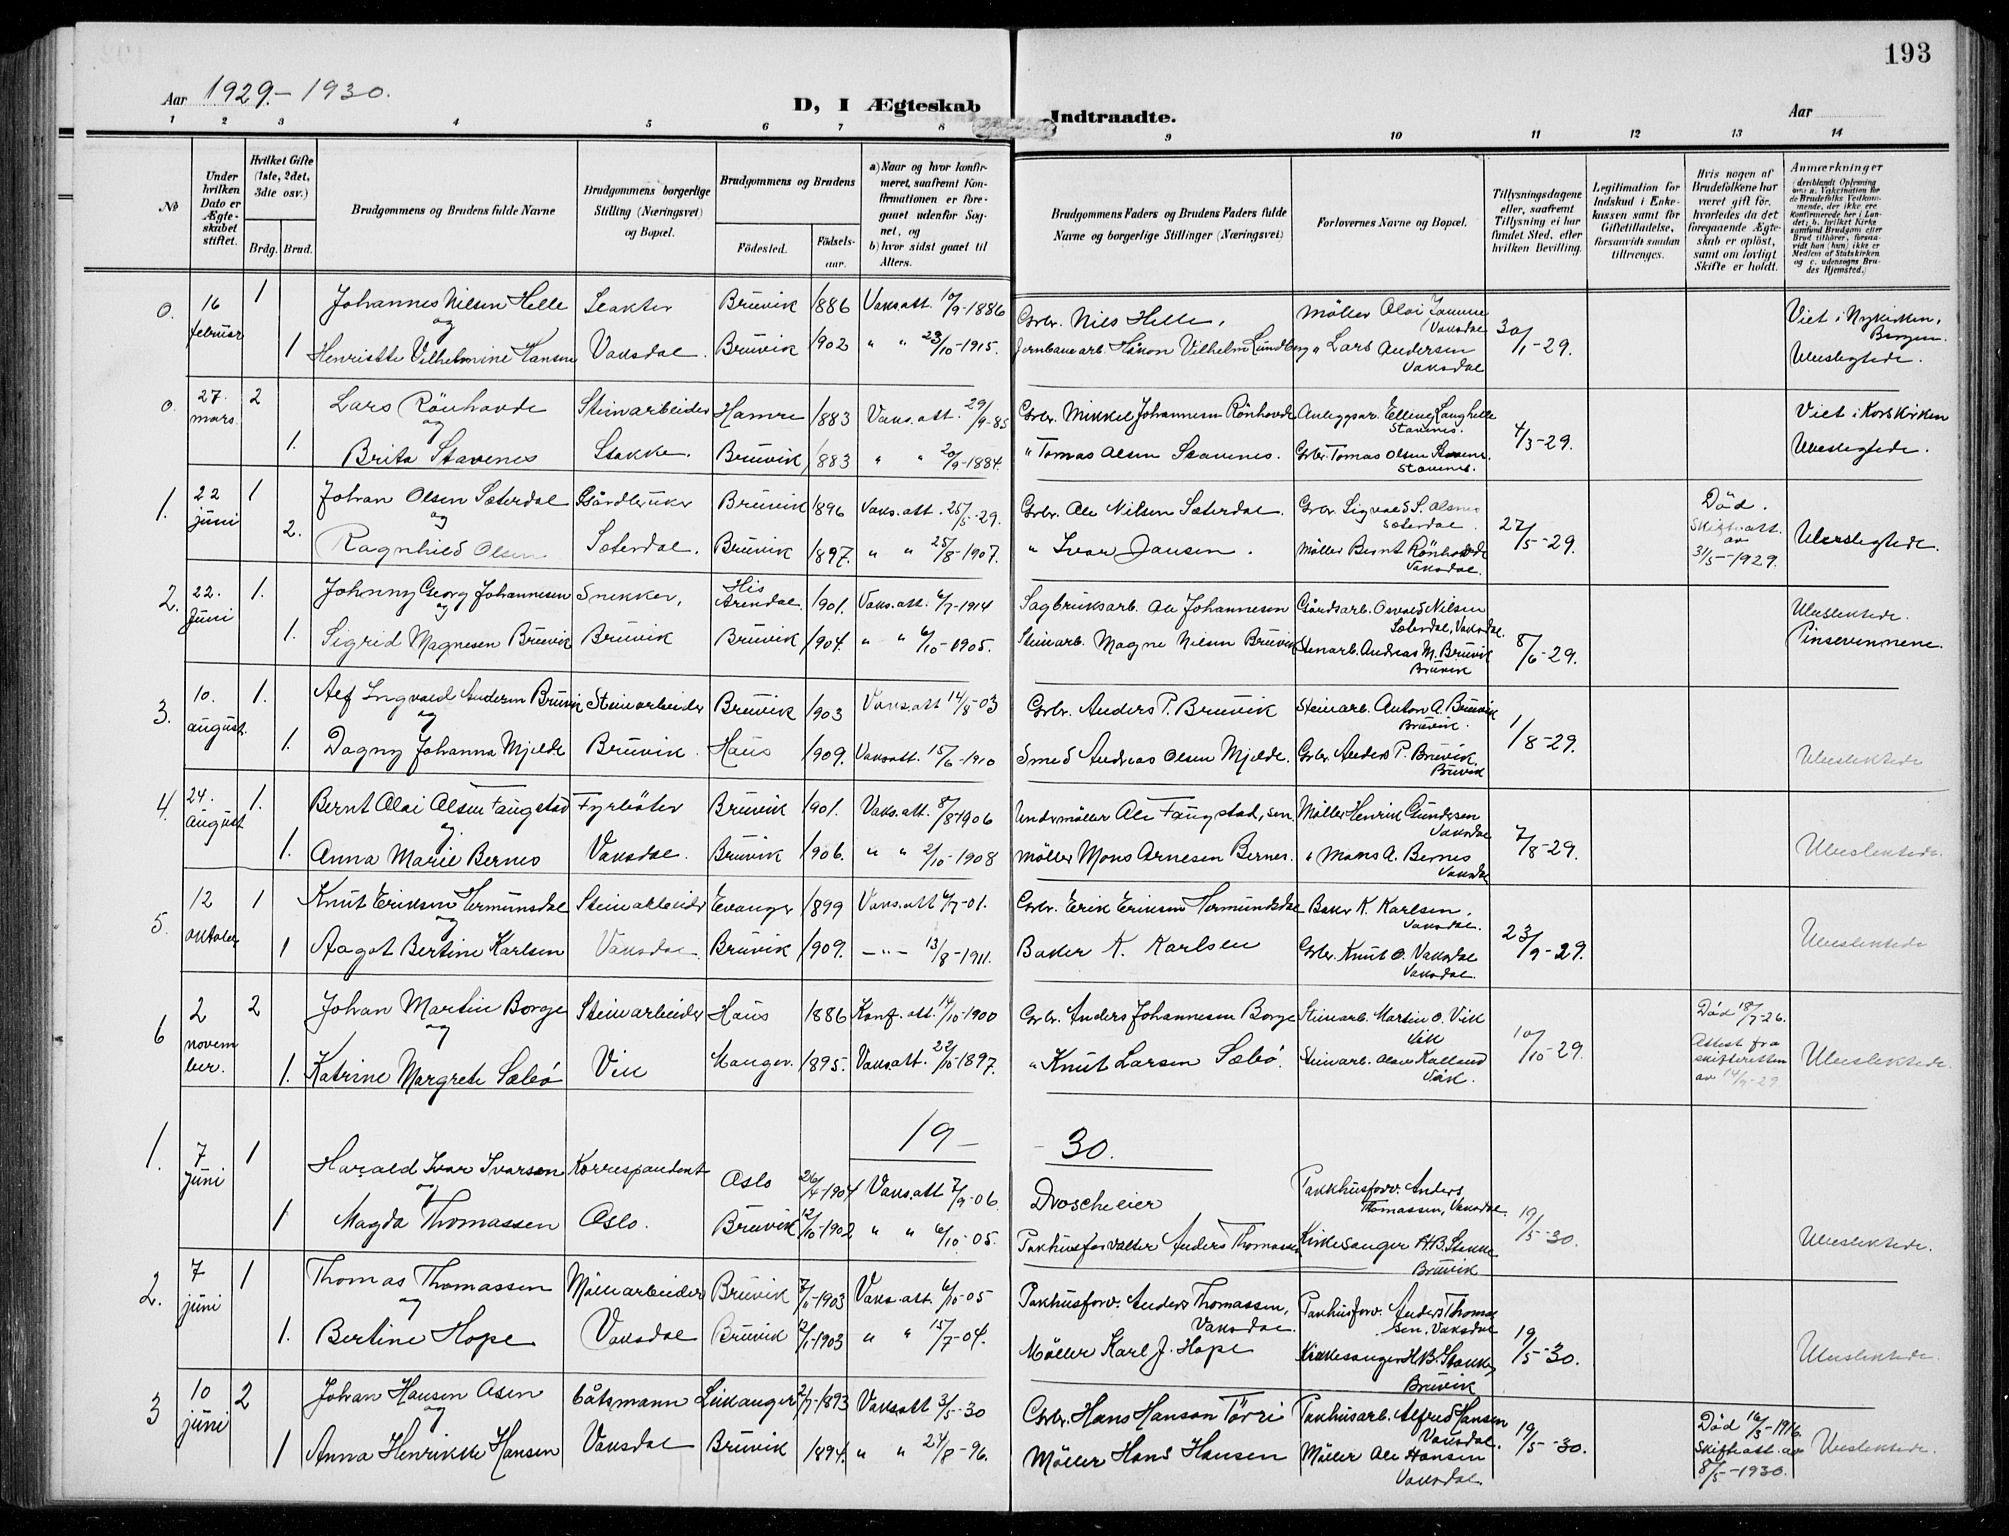 193
Aar 1929.-1930.
D, I Ægteskab Indtraadte.
Aar
1 2 3 4 5 6 7 8 9 10 11 12 13 14
No
Under hvilken Dato er Ægteskabet stiftet.
Hvilket Gifte (1ste, 2det, 3die osv.)
Brdg. Brud.
Brudgommens og Brudens fulde Navne
Brudgommens borgerlige Stilling (Næringsvei) og Bopæl.
Brudgommens og Brudens
Fødested. Fødselsaar.
a) Naar og hvor konfirmeret, saafremt Konfirmationen er foregaaet udenfor Sognet, og
b) hvor sidst gaaet til Alters.
Brudgommens Faders og Brudens Faders fulde Navne og borgerlige Stillinger (Næringsvei)
Forlovernes Navne og Bopæl.
Tillysningsdagene eller, saafremt Tillysning ei har fundet Sted, efter hvilken Bevilling.
Legitimation for Indskud i Enkekassen samt for Giftetilladelse, forsaavidt saadan tiltrænges.
Hvis nogen af Brudefolkene har været gift før, hvorledes da det foregaaende Ægteskab er opløst, samt om lovligt Skifte er holdt.
Anmærkninger
0. 16 februar 1 Johannes Nilsen Helle Brüvik 1886 Vaks.att. 10/9-1886 Grbr. Nils Helle. Viet i Nykirken, Bergen.
og
1 Henriette Vilhelmine Hansen Vaksdal. Brüvik 1902 " " 23/10-1915. Jernbanearb. Håkon Vilhelm Lundberg " Lars Andersen Vaksdal 30/1-29. Ubeslegtede.
0. 27. mars. 2 Lars Rönhovde Steinarbeider Hamre 1883 Vaks.att. 29/9-85 Grbr. Mikkel Johannesen Rönhovde Anleggsar. Elling Langhelle Stavenes. Viet i Korskirken
og
1. Brita Stavenes Stakke. Brüvik 1883 " " 20/9-1884. " Tomas Olsen Stavenes. Grbr. Tomas Olsen Stavenes. 4/3-29. Ubeslegtede.
1. 22 juni 1 Johan Olsen Sæterdal Gårdbruker Brüvik 1896 Vaks.att. 25/5-29. Grbr. Ole Nilsen Sæterdal. Grbr Sigvald S. Sæterdal. Död.
og
2. Ragnhild Olsen Sæterdal. Brüvik 1897. " " 25/8-1907. " Ivar Jansen. Möller Bernt Rönhovde Vaksdal. 27/5-29. Skifteatt. av 31/5-1929. Ubeslegtede.
2. 22. Juni 1. Johnny Georg Johannesen Snekker, His Arendal 1901. Vaks.att. 6/7-1914 Sagbruksarb. Ole Johannesen Gårdsarb. Osvald Nilsen Sæterdal, Vaksdal. Ubeslektede.
og
1. Sigrid Magnesen Brüvik Brüvik Brüvik 1904. " " 6/10-1905. Steinarb. Magne Nilsen Brüvik Stenarb. Andreas M. Brüvik Brüvik 8/6-29. Pinsevennene.
3. 10. august. 1. Alf Ingvald Andersen Brüvik Steinarbeider Brüvik 1903 Vaks.att 14/8-03 Grbr. Anders P. Brüvik Steinarb. Anton A. Brüvik Brüvik.
og
1. Dagny Johanna Mjelde Brüvik. Haus 1909. Vaks.att. 15/6-1910 Smed Andreas Olsen Mjelde. Grbr. Anders P. Brüvik, Brüvik 1/8-29. Ubeslektede
4. 24. august 1. Bernt Olai Olsen Faugstad Fyrböter Brüvik 1901. Vaks.att. 8/8-1906 Undermöller Ole Faugstad, sen. Möller Henrik Gundersen Vaksdal
og
1. Anna Marie Bernes Vaksdal. Brüvik 1906. " " 2/10-1908 Möller Mons Arnesen Bernes. " Mons A. Bernes Vaksdal 7/8-29. Ubeslektede.
5. 12 oktober 1 Knut Eriksen Hermunsdal Steinarbeider Evanger 1899 Vaks.att 6/7-01. Grbr. Erik Eriksen Hermundsdal Baker K. Karlsen, Vaksdal.
og
1 Aagot Bertine Karlsen Vaksdal. Brüvik 1909. -"- 13/8-1911. Baker K. Karlsen Grbr. Knut O. Vaksdal Vaksdal. 23/9-29. Ubeslektede
6 2 november. 2 Johan Martin Borge Steinarbeider Haus 1886 Konf.att. 14/10-1900 Grbr. Anders Johannesen Borge Steinarb. Martin O. Vik Vik Död 18/7-26.
og
1. Katrine Margrete Sæbö Vik Manger. 1895. Vaks.att. 22/10-1897. " Knut Larsen Sæbö. Steinarb. Olav Kalland Vik. 10/10-29. Attest fra skifteretten av 14/9-29 Ubeslektede.
19-30.
1. 7 juni 1 Harald Ivar Ivarsen Korrespondent Oslo 26/4-1904 Vaks.att 7/9-06. Droscheeier Pakkhusforv. Anders Thomassen, Vaksdal.
og
1 Magda Thomassen Oslo. Brüvik 12/10-1902 " " 6/10-05. Pakhusforvalter Anders Thomassen Kirkesanger H.B. Stakke Brüvik 19/5-30. Ubeslektede.
2. 7 juni 1 Thomas Thomassen Möllearbeider Brüvik 7/11-1903 Vaks.att. 6/10-05 Pakhusforv. Anders Thomassen, Vaksdal. Pakhusforv. Anders Thomassen, Vaksdal
og
1. Bertine Hope Vaksdal Brüvik 1903 " " 15/7-04. Möller Karl J. Hope Kirkesanger H.B. Stakke, Brüvik 19/5-30. Ubeslektede.
3 10 juni 2 Johan Hansen Åsen båtsmann Leikanger 1893 Vaks.att 3/5-30 Grbr. Hans Hanson Törri Pakhusarb. Alfred Hansen Vaksdal. Död 16/3-1916.
og
1 Anna Henrikke Hansen Vaksdal Brüvik 1894. " " 24/8-96. Möller Hans Hansen Möller Ole Hansen Vaksdal. 19/5-30. Skifteatt. av 8/5-1930. Ubeslektede.